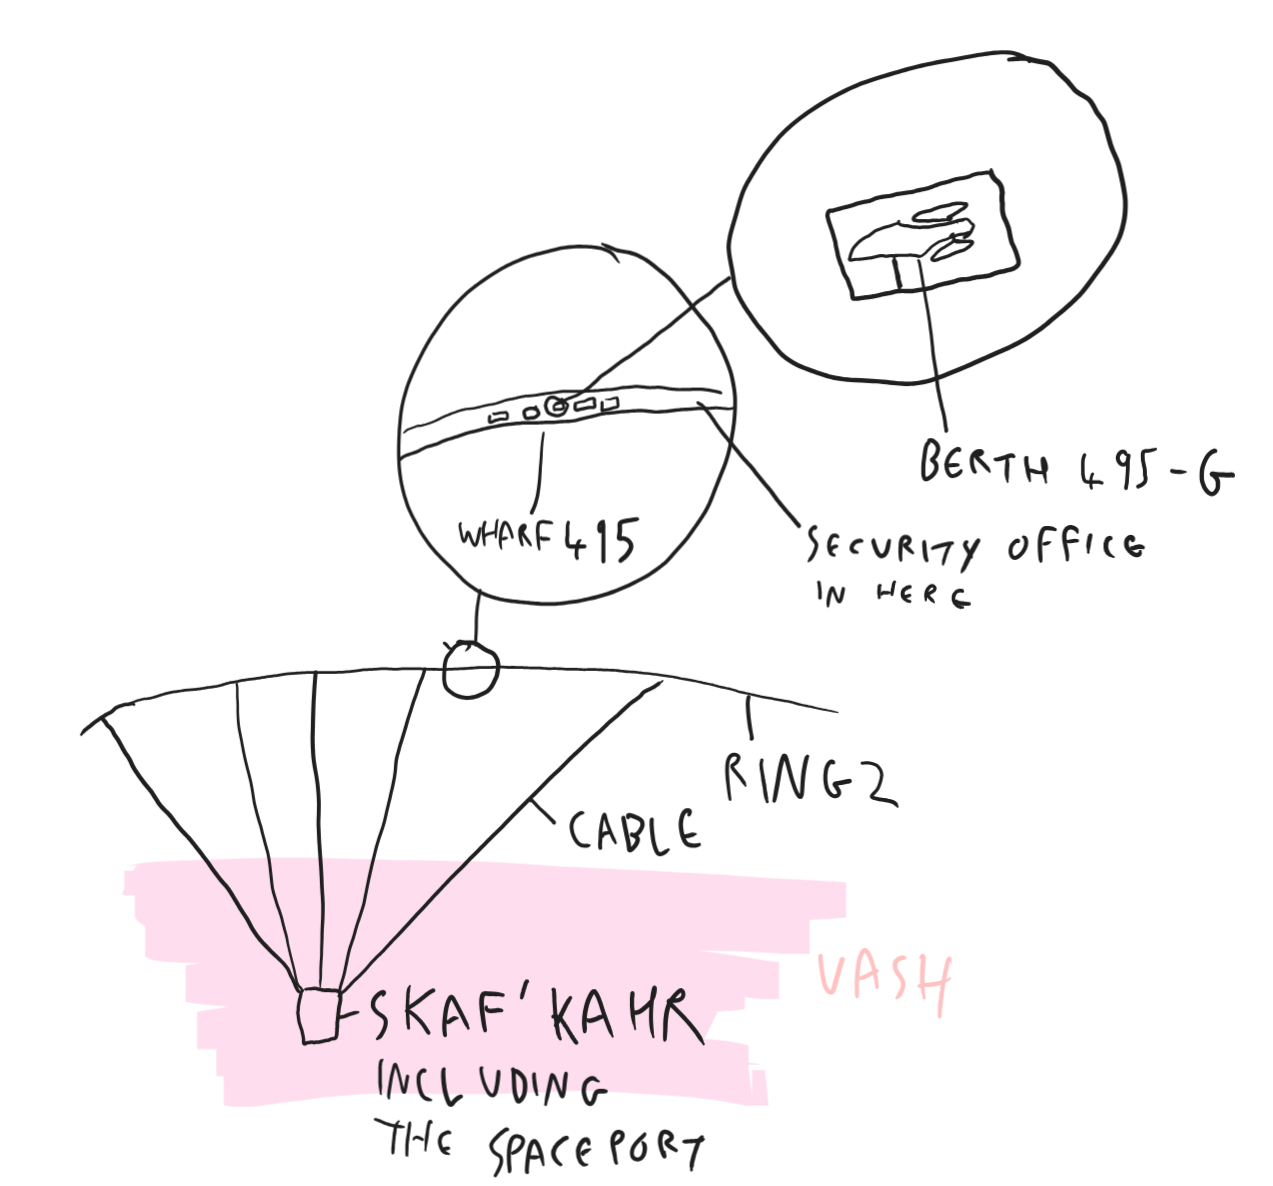 BERTH 495-G
WHARF 495
SECURITY OFFICE
IN HERE
RING 2
CABLE
VASH
SKAF'KAHR
INCLUDING
THE SPACEPORT